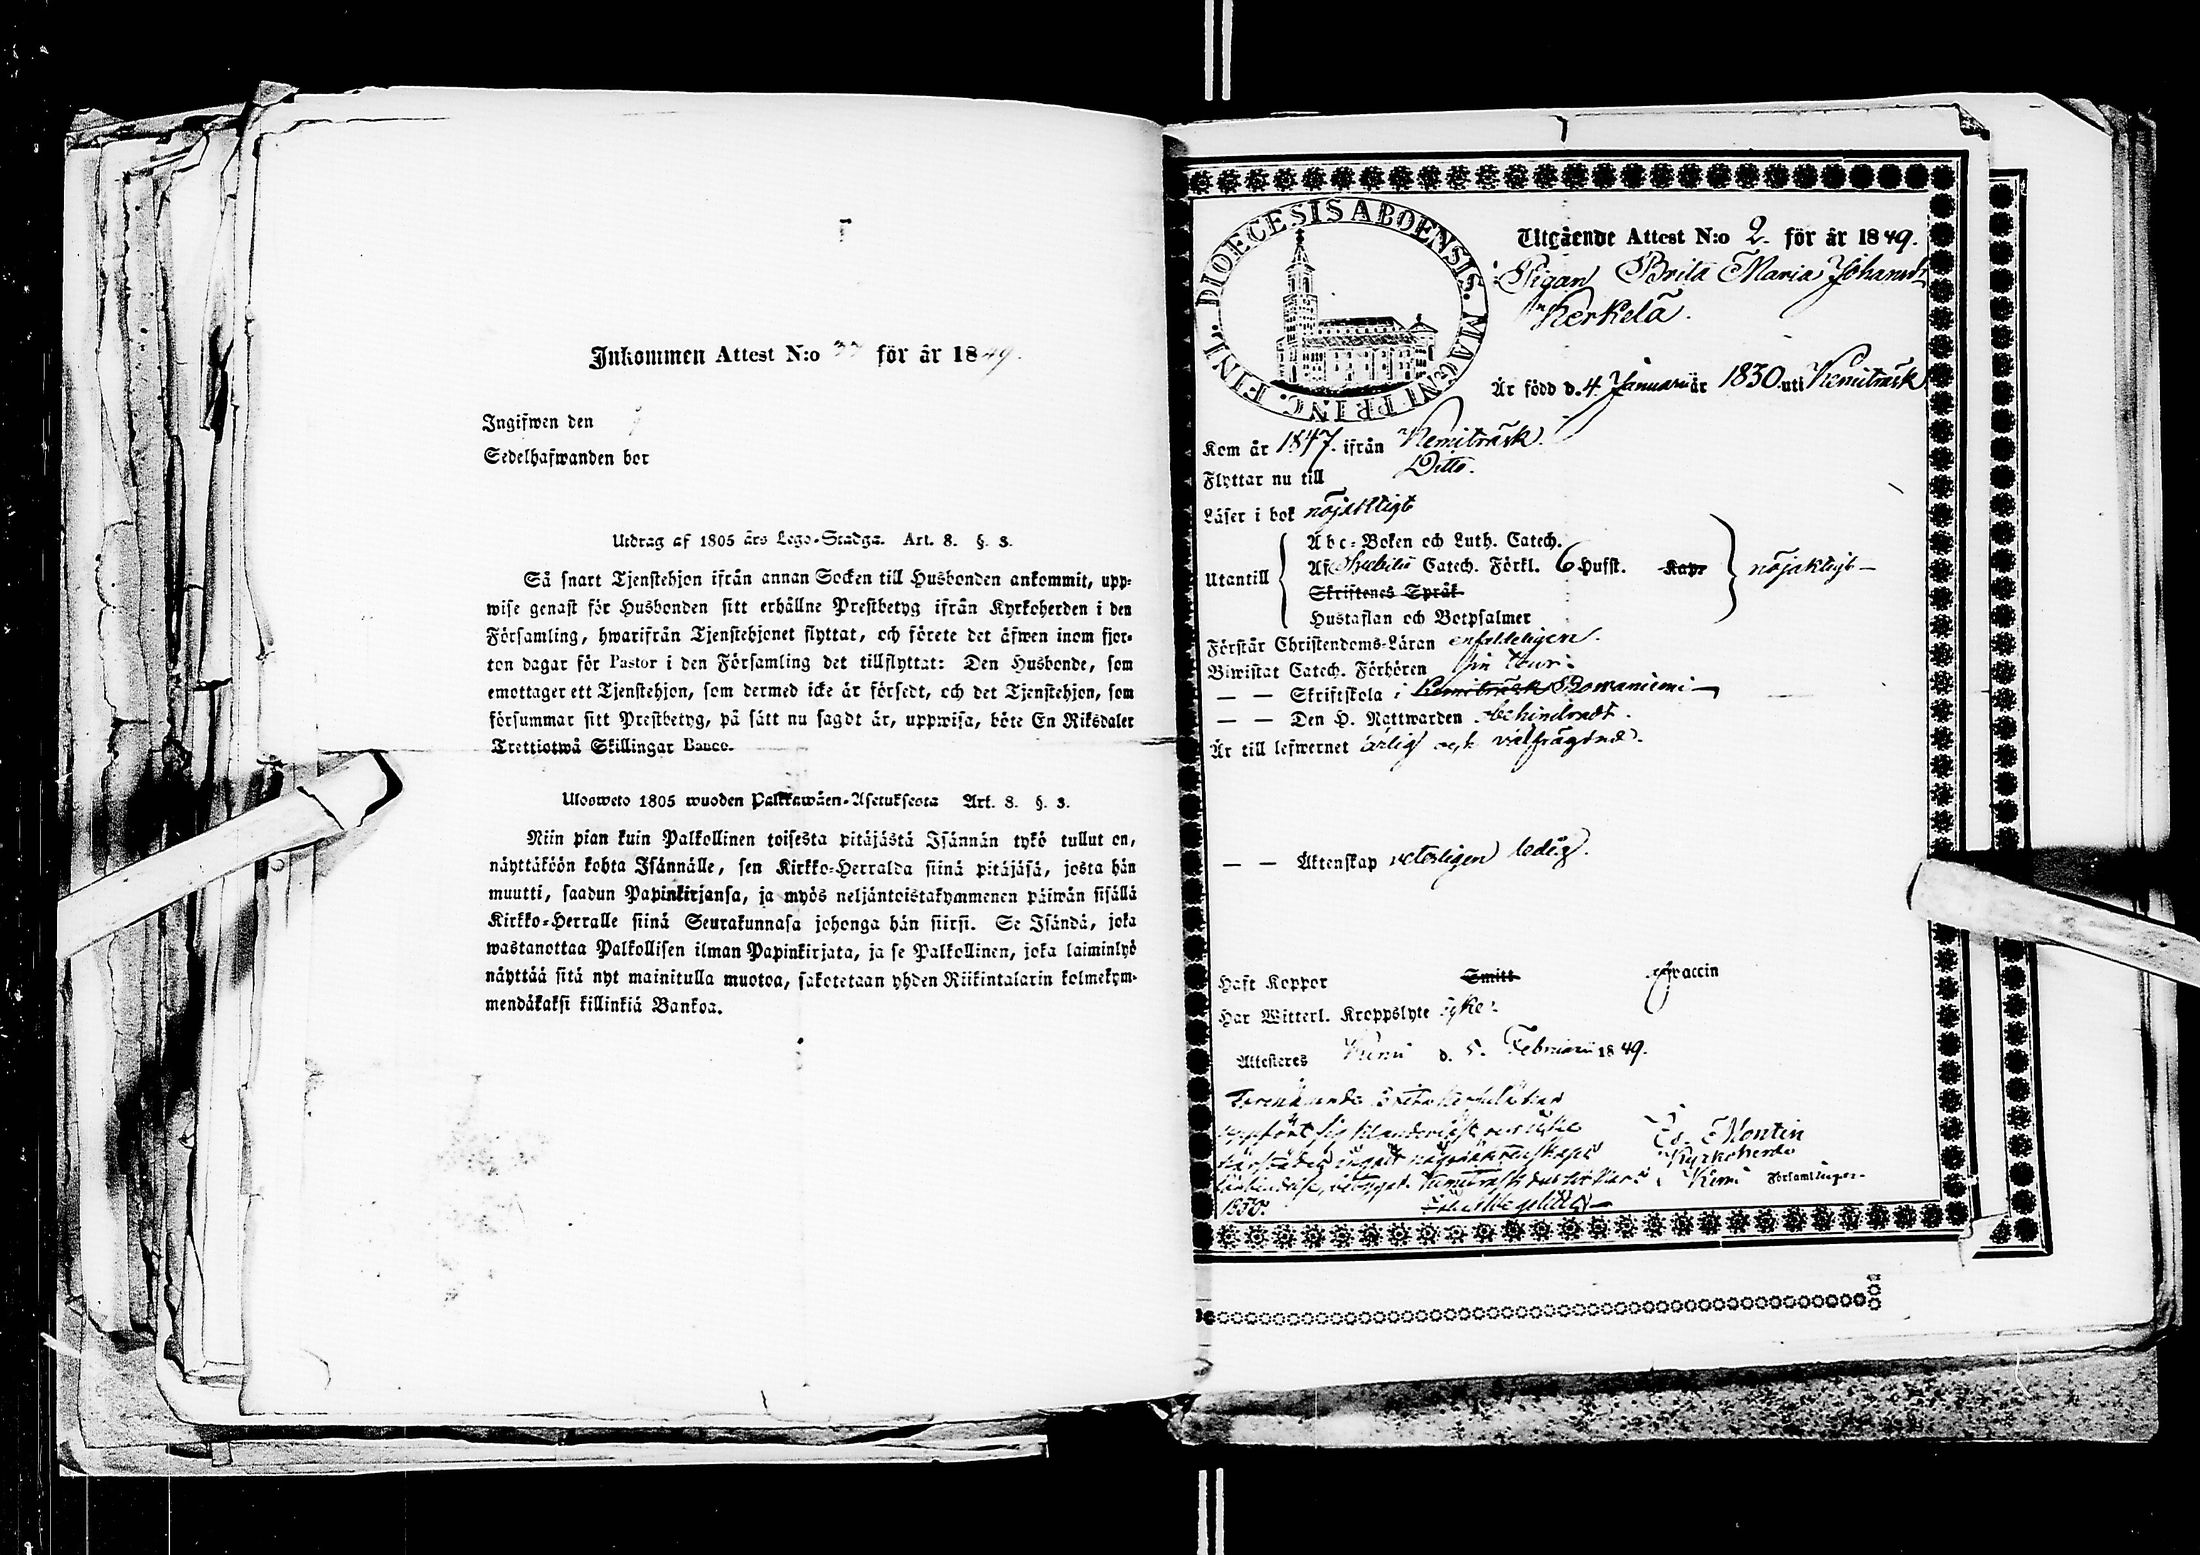 Inkommen Attest N:o för år 1849.
Ingifwen den
Sedelhafwanden bor
Utdrag af 1805 års Lego-Stadga. Art. 8. §. 3.
Så snart Tjenstehjon ifrån annan Socken till Husbonden ankommit, upp-
wise genast för Husbonden sitt erhållne Prestbetyg ifrån Kyrkoherden i den
Församling, hwarifrån Tjenstehjonet flyttat, och förete det äfwen inom fjor-
ton dagar för Pastor i den Församling det tillflyttat: Den Husbonde, som
emottager ett Tjenstehjon, som dermed icke är försedt, och det Tjenstehjon, som
försummar sitt Prestbetyg, på sätt nu sagdt är, uppwisa, böte En Riksdaler
Trettiotwå Skillingar Banco.
Ulosweto 1805 wuoden Palkkawäen-Asetuksesta Art. 8. §. 3.
Niin pian kuin Palkollinen toisesta pitäjästä Isännän tykö tullut on,
näyttäköön kohta Isännälle, sen Kirkko-Herralda siinä pitäjäsä, josta hän
muutti, saadun Papinkirjansa, ja myös neljäntoistakymmenen päiwän sisällä
Kirkko-Herralle siinä Seurakunnasa johonga hän siirsi. Se Isändä, joka
wastanottaa Palkollisen ilman Papinkirjata, ja se Palkollinen, joka laiminlyö
näyttää sitä nyt mainitulla muotoa, sakotetaan yhden Riikintalarin kolmekym-
mendäkaksi killinkiä Bankoa.
DIOECESIS ABOENSIS. MAGNI PRINC. FINL.
Utgående Attest N:o 2. för år 1849.
Pigan Brita Maria Johansdr
Kerkelä.
Är född d. 4 Januari år 1830 uti Kemiträsk
Kom år 1847. ifrån Kemiträsk.
Flyttar nu till Ditto.
Läser i bok nöjaktigt
Utantill
Abc-Boken och Luth. Catech.
Af Svebilii Catech. Förkl. 6 Hufst. Kapr
Skriftenes Språk
Hustaflan och Botpsalmer
nöjaktigt
Förstår Christendoms-Läran enfaldeligen.
Biwistat Catech. Förhören sin tour.
— — Skriftskola i Kemiträsk Rowaniemi
— — Den H. Nattwarden obehindradt.
Är till lefwernet ärlig och välfrägdad.
— — Äktenskap veterligen ledig.
Haft Koppor Smitt Vaccin
Har Witterl. Kroppslyte icke.
Attesteras Kemi d. 5. Februari 1849.
Es. Montin
Kyrkoherde
i Kemi Församlingar.
1850.